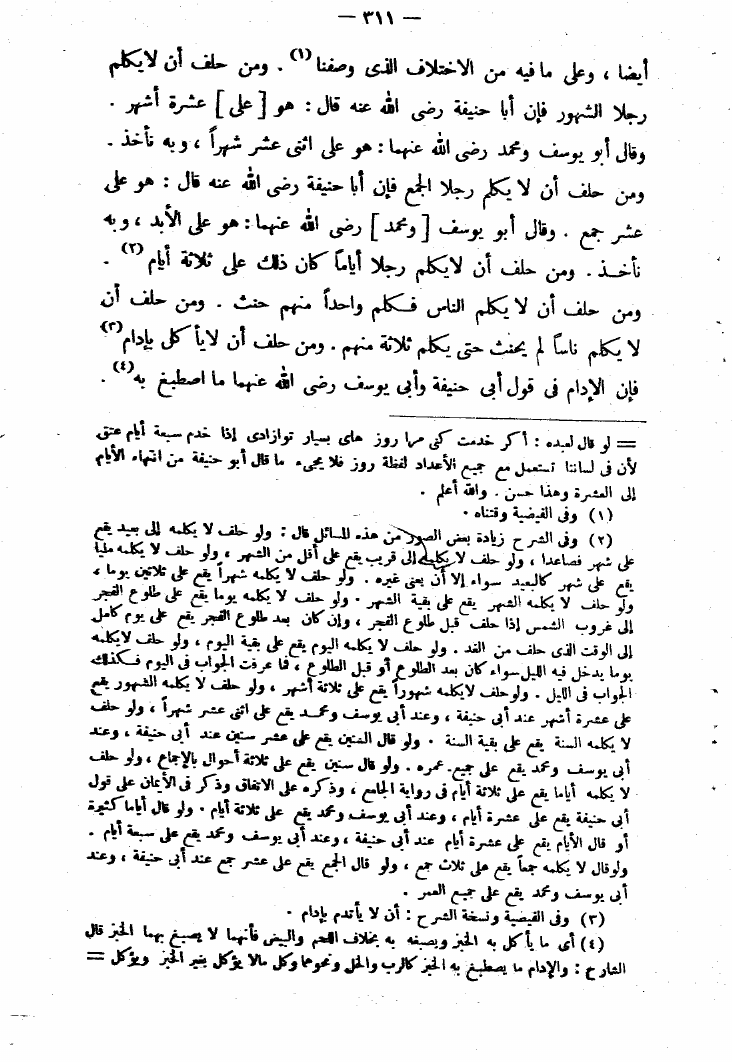 — ٣١١ —
أيضا ، وعلى ما فيه من الاختلاف الذى وصفنا (١) . ومن حلف أن لا يكلم
رجلا الشهور فإن أبا حنيفة رضى الله عنه قال : هو [ على ] عشرة أشهر .
وقال أبو يوسف ومحمد رضى الله عنهما : هو على اثنى عشر شهراً ، وبه نأخذ .
ومن حلف أن لا يكلم رجلا الجمع فإن أبا حنيفة رضى الله عنه قال : هو على
عشر جمع . وقال أبو يوسف [ ومحمد ] رضى الله عنهما : هو على الأبد ، وبه
نأخذ . ومن حلف أن لا يكلم رجلا أياماً كان ذلك على ثلاثة أيام (٢) .
ومن حلف أن لا يكلم الناس فكلم واحداً منهم حنث . ومن حلف أن
لا يكلم ناساً لم يحنث حتى يكلم ثلاثة منهم . ومن حلف أن لا يأكل بإدام (٣)
فإن الإدام فى قول أبى حنيفة وأبى يوسف رضى الله عنهما ما اصطبغ به (٤) .
= لو قال لعبده : أكر خدمت كنى مرا روز هاى بسيار توازادى إذا خدم سبعة أيام عتق
لأن فى لساننا تستعمل مع جميع الأعداد لفظة روز فلا يجىء ما قال أبو حنيفة من انتهاء الأيام
إلى العشرة وهذا حسن . والله أعلم .
(١) وفى الفيضية وقتناه .
(٢) وفى الشرح زيادة بعض الصور من هذه المسائل قال : ولو حلف لا يكلمه إلى بعيد يقع
على شهر فصاعدا ، ولو حلف لا يكلمه إلى قريب يقع على أقل من الشهر ، ولو حلف لا يكلمه مليا
يقع على شهر كالبعيد سواء إلا أن يعنى غيره . ولو حلف لا يكلمه شهراً يقع على ثلاثين يوما ،
ولو حلف لا يكلمه الشهر يقع على بقية الشهر . ولو حلف لا يكلمه يوما يقع على طلوع الفجر
إلى غروب الشمس إذا حلف قبل طلوع الفجر ، وإن كان بعد طلوع الفجر يقع على يوم كامل
إلى الوقت الذى حلف من الغد . ولو حلف لا يكلمه اليوم يقع على بقية اليوم ، ولو حلف لا يكلمه
يوما يدخل فيه الليل سواء كان بعد الطلوع أو قبل الطلوع ، فما عرفت الجواب فى اليوم فكذلك
الجواب فى الليل . ولو حلف لا يكلمه شهوراً يقع على ثلاثة أشهر ، ولو حلف لا يكلمه الشهور يقع
على عشرة أشهر عند أبى حنيفة ، وعند أبى يوسف ومحمد يقع على اثنى عشر شهراً ، ولو حلف
لا يكلمه السنة يقع على بقية السنة . ولو قال السنين يقع على عشر سنين عند أبى حنيفة ، وعند
أبى يوسف ومحمد يقع على جميع عمره . ولو قال سنين يقع على ثلاثة أحوال بالإجماع ، ولو حلف
لا يكلمه أياما يقع على ثلاثة أيام فى رواية الجامع ، وذكره على الاتفاق وذكر فى الأيمان على قول
أبى حنيفة يقع على عشرة أيام ، وعند أبى يوسف ومحمد يقع على ثلاثة أيام . ولو قال أياما كثيرة
أو قال الأيام يقع على عشرة أيام عند أبى حنيفة ، وعند أبى يوسف ومحمد يقع على سبعة أيام .
ولو قال لا يكلمه جمعاً يقع على ثلاث جمع ، ولو قال الجمع يقع على عشر جمع عند أبى حنيفة ، وعند
أبى يوسف ومحمد يقع على جميع العمر .
(٣) وفى الفيضية ونسخة الشرح : أن لا يأتدم بإدام .
(٤) أى ما يأكل به الخبز ويصبغه به بخلاف اللحم والبيض فأنهما لا يصبغ بهما الخبز قال
الشارح : والإدام ما يصطبغ به الخبز كالرب والخل ونحوهما وكل مالا يؤكل بغير الخبز ويؤكل =